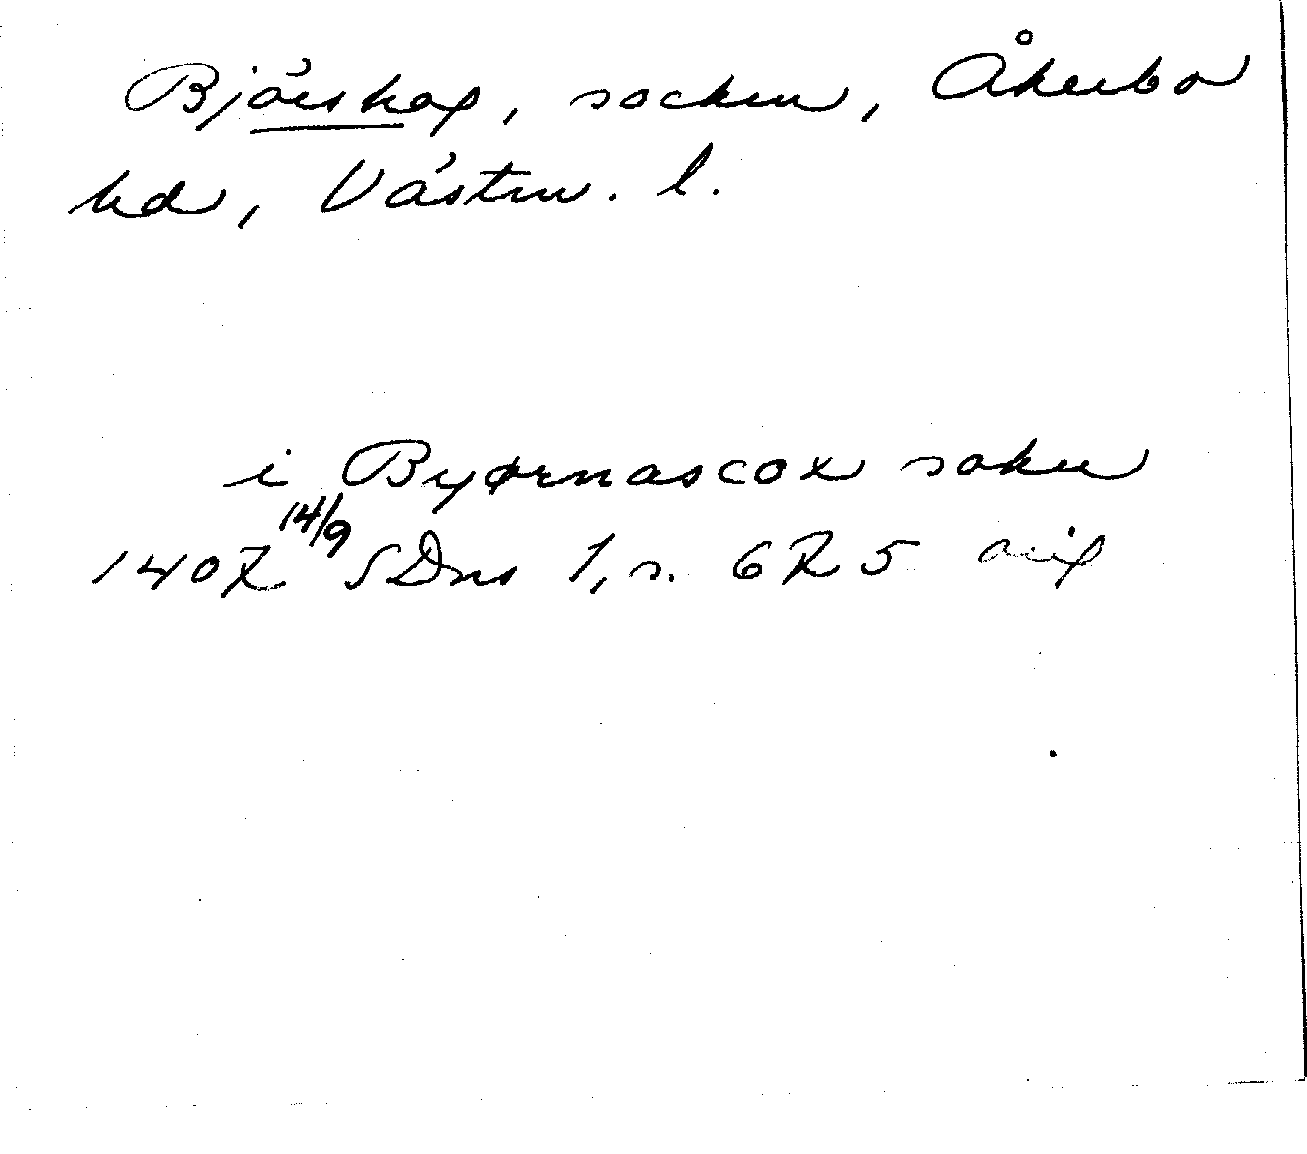 Björskog, socken, Åkerbo
hd, Västm. l.
i Byørnascox sokn
1407 14/9 SDns 1, s. 675 orig